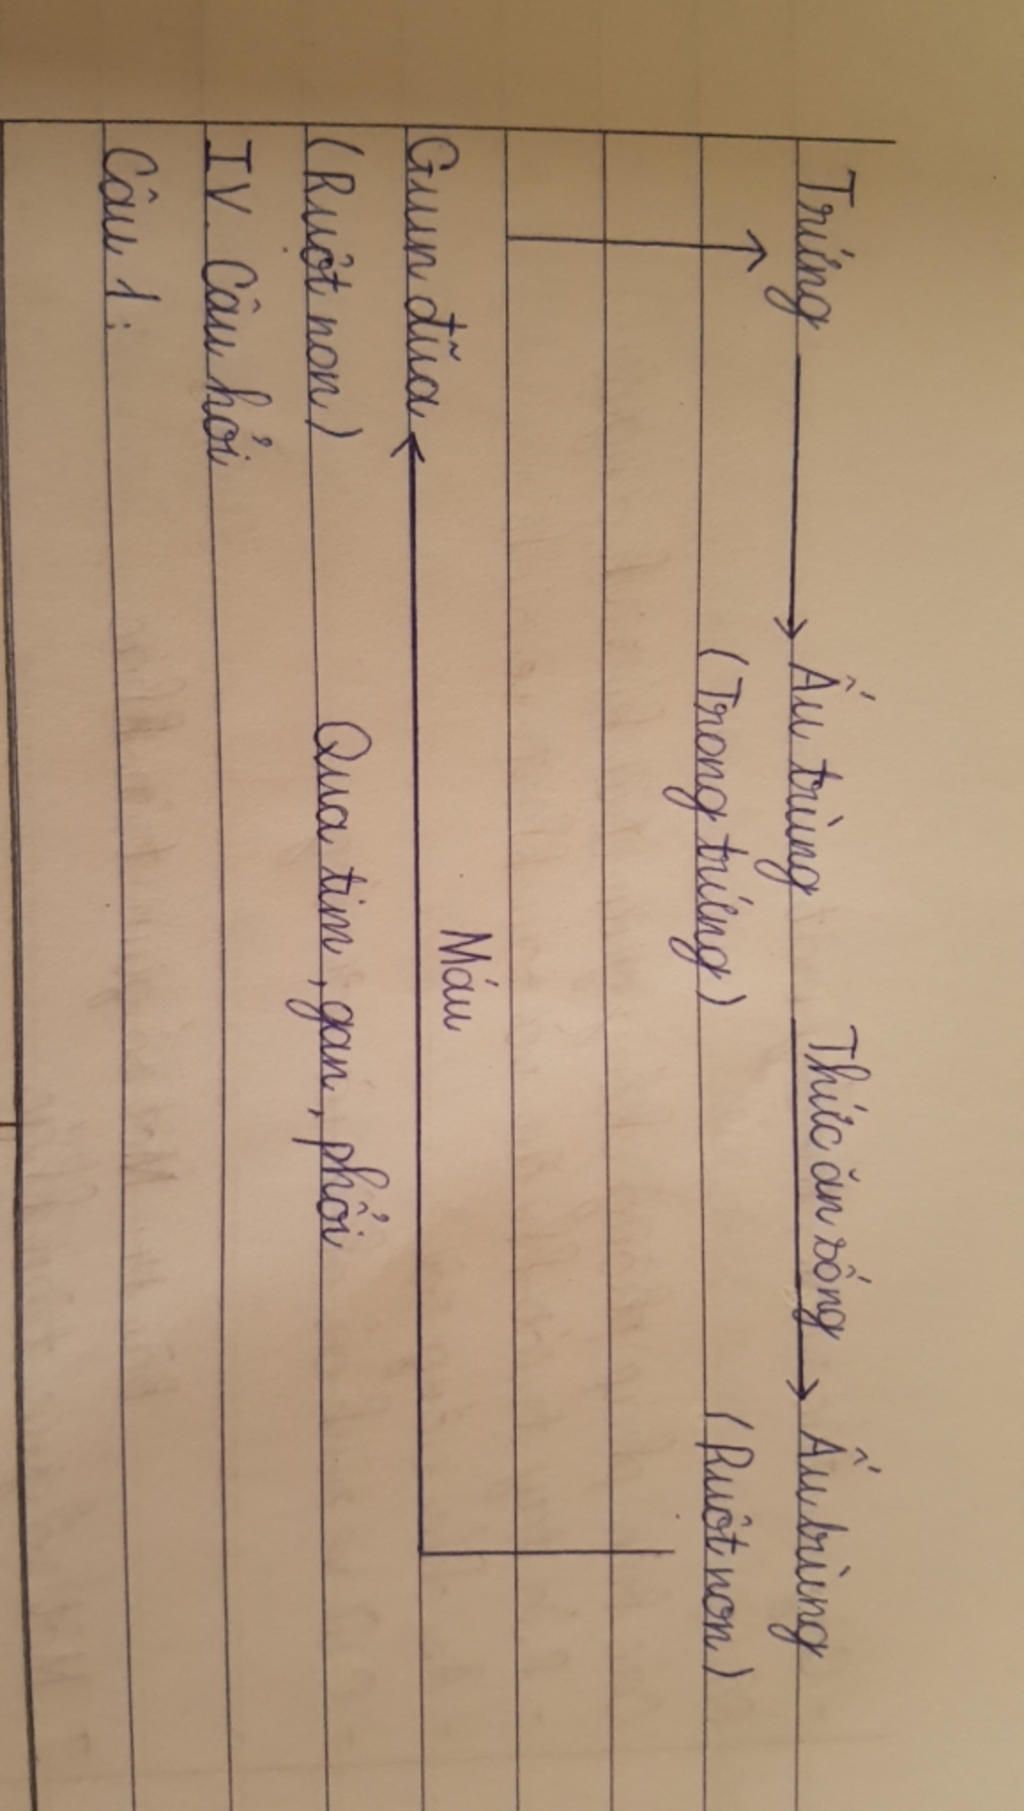 Thức ăn sống
Trứng → Ấu trùng → Ấu trùng
(Trong trứng) (Ruột non)
Máu
Giun đũa
(Ruột non) Qua tim, gan, phổi
IV. Câu hỏi
Câu 1: